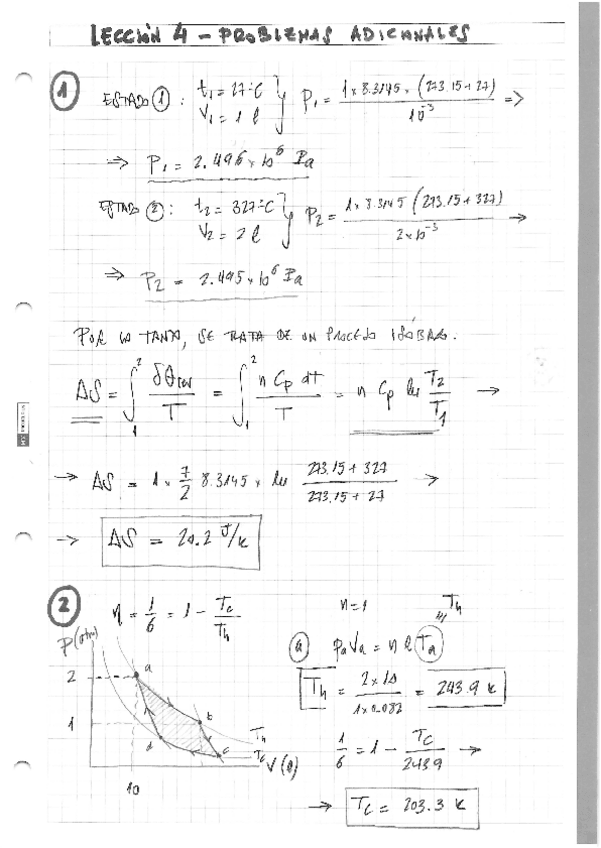 LECCIÓN 4 - PROBLEMAS ADICIONALES
1 ESTADO 1 : t₁ = 27 °C V₁ = 1 l } P₁ = 1 x 8.3145 x (273.15 + 27) / 10⁻³ =>
=> P₁ = 2.496 x 10⁶ Pa
ESTADO 2 : t₂ = 327 °C V₂ = 2 l } P₂ = 1 x 8.3145 (273.15 + 327) / 2 x 10⁻³ →
=> P₂ = 2.495 x 10⁶ Pa
POR LO TANTO, SE TRATA DE UN PROCESO ISÓBARO.
ΔS = ∫₁² δQrev / T = ∫₁² n Cp dT / T = n Cp ln T₂ / T₁ →
→ ΔS = 1 x 7/2 8.3145 x ln 273.15 + 327 / 273.15 + 27 →
→ ΔS = 20.2 J/K
2 η = 1/6 = 1 - Tc/Th n = 1 Th
P(atm) a PaVa = n R Ta
2 a Th = 2 x 10 / 1 x 0.082 = 243.9 K
1 b
d c Th Tc V(l) 1/6 = 1 - Tc / 243.9 →
10 → Tc = 203.3 K